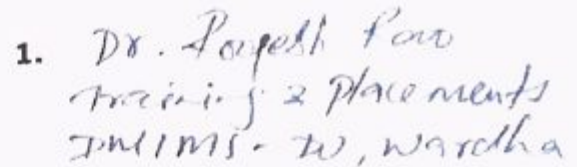 1. Dr. Rao
Training & Placements
DMIMS - DU, Wardha